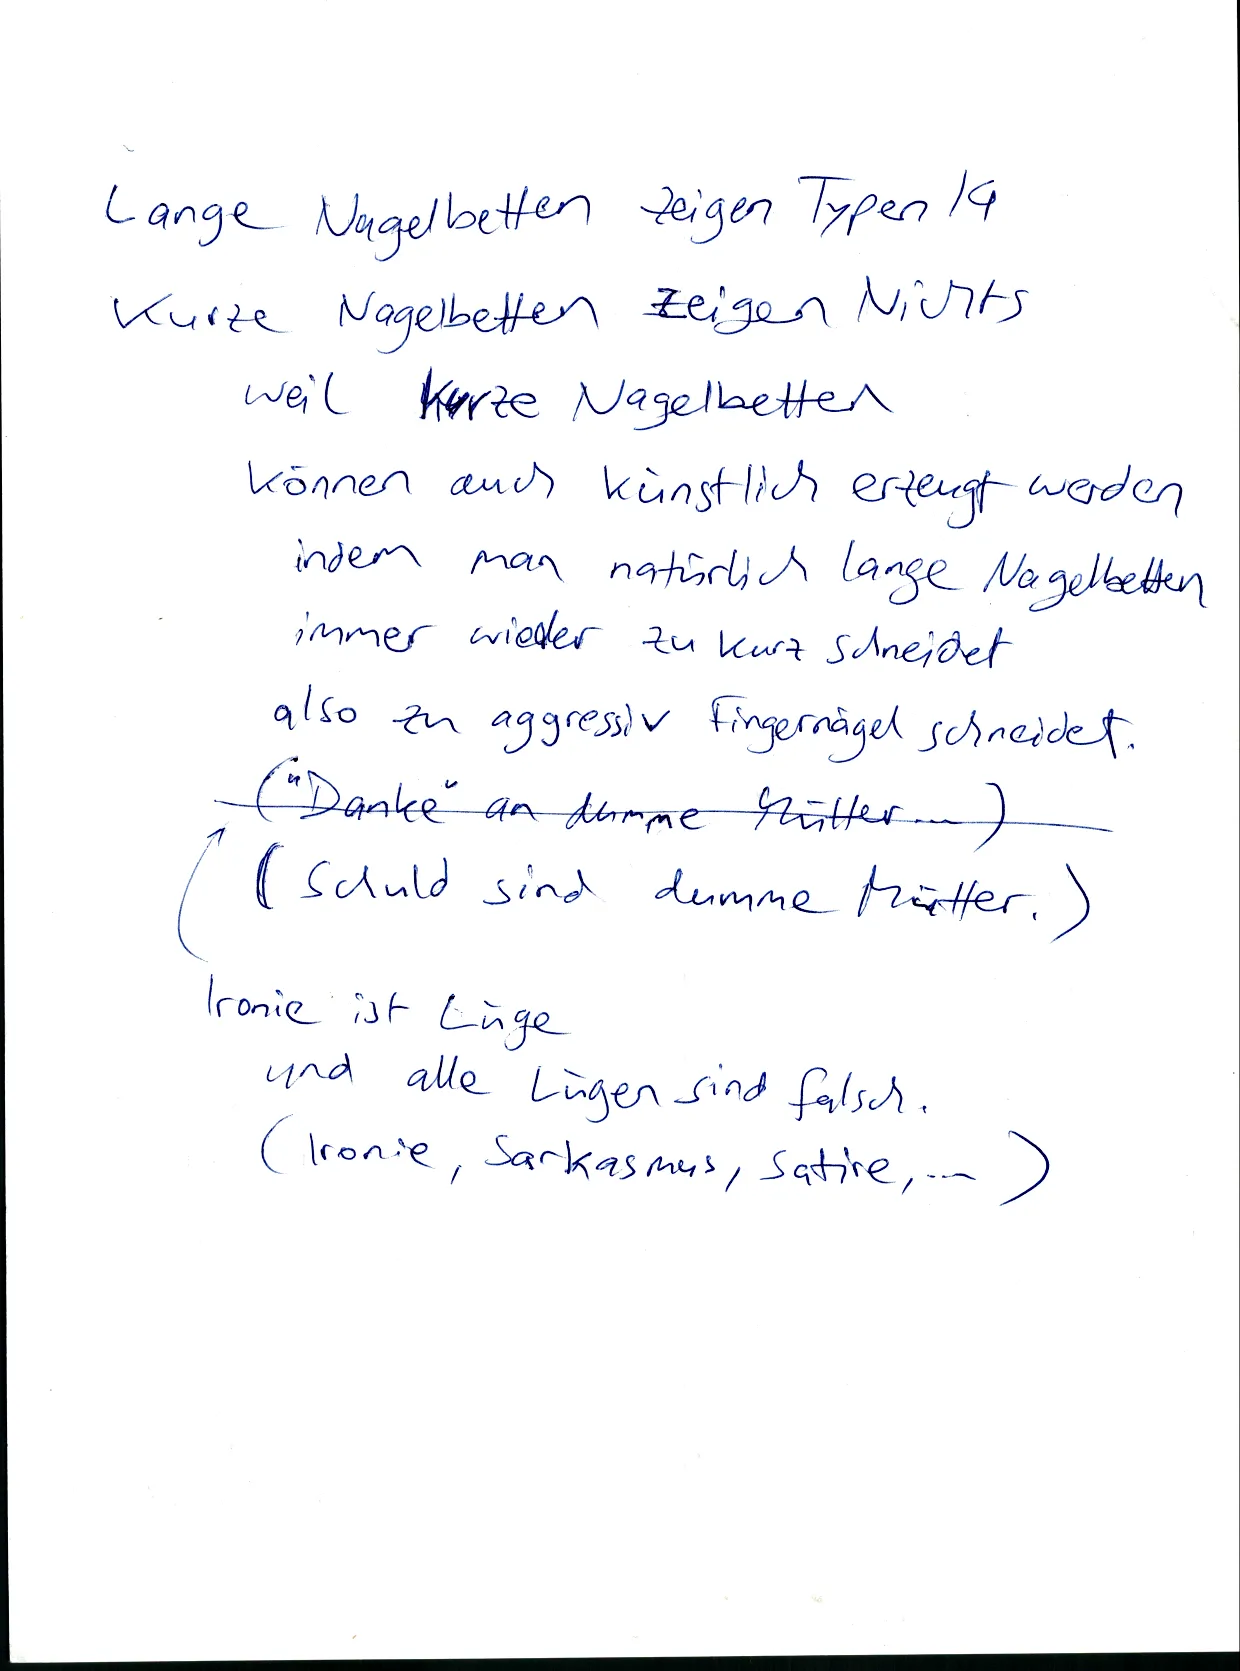 Lange Nagelbetten zeigen Typen 14
Kurze Nagelbetten zeigen Nichts
weil kurze Nagelbetten
können auch künstlich erzeugt werden
indem man natürlich lange Nagelbetten
immer wieder zu kurz schneidet
also zu aggressiv Fingernägel schneidet.
("Danke" an dumme Mütter...)
(Schuld sind dumme Mütter.)
Ironie ist Lüge
und alle Lügen sind falsch.
(Ironie, Sarkasmus, Satire, ...)